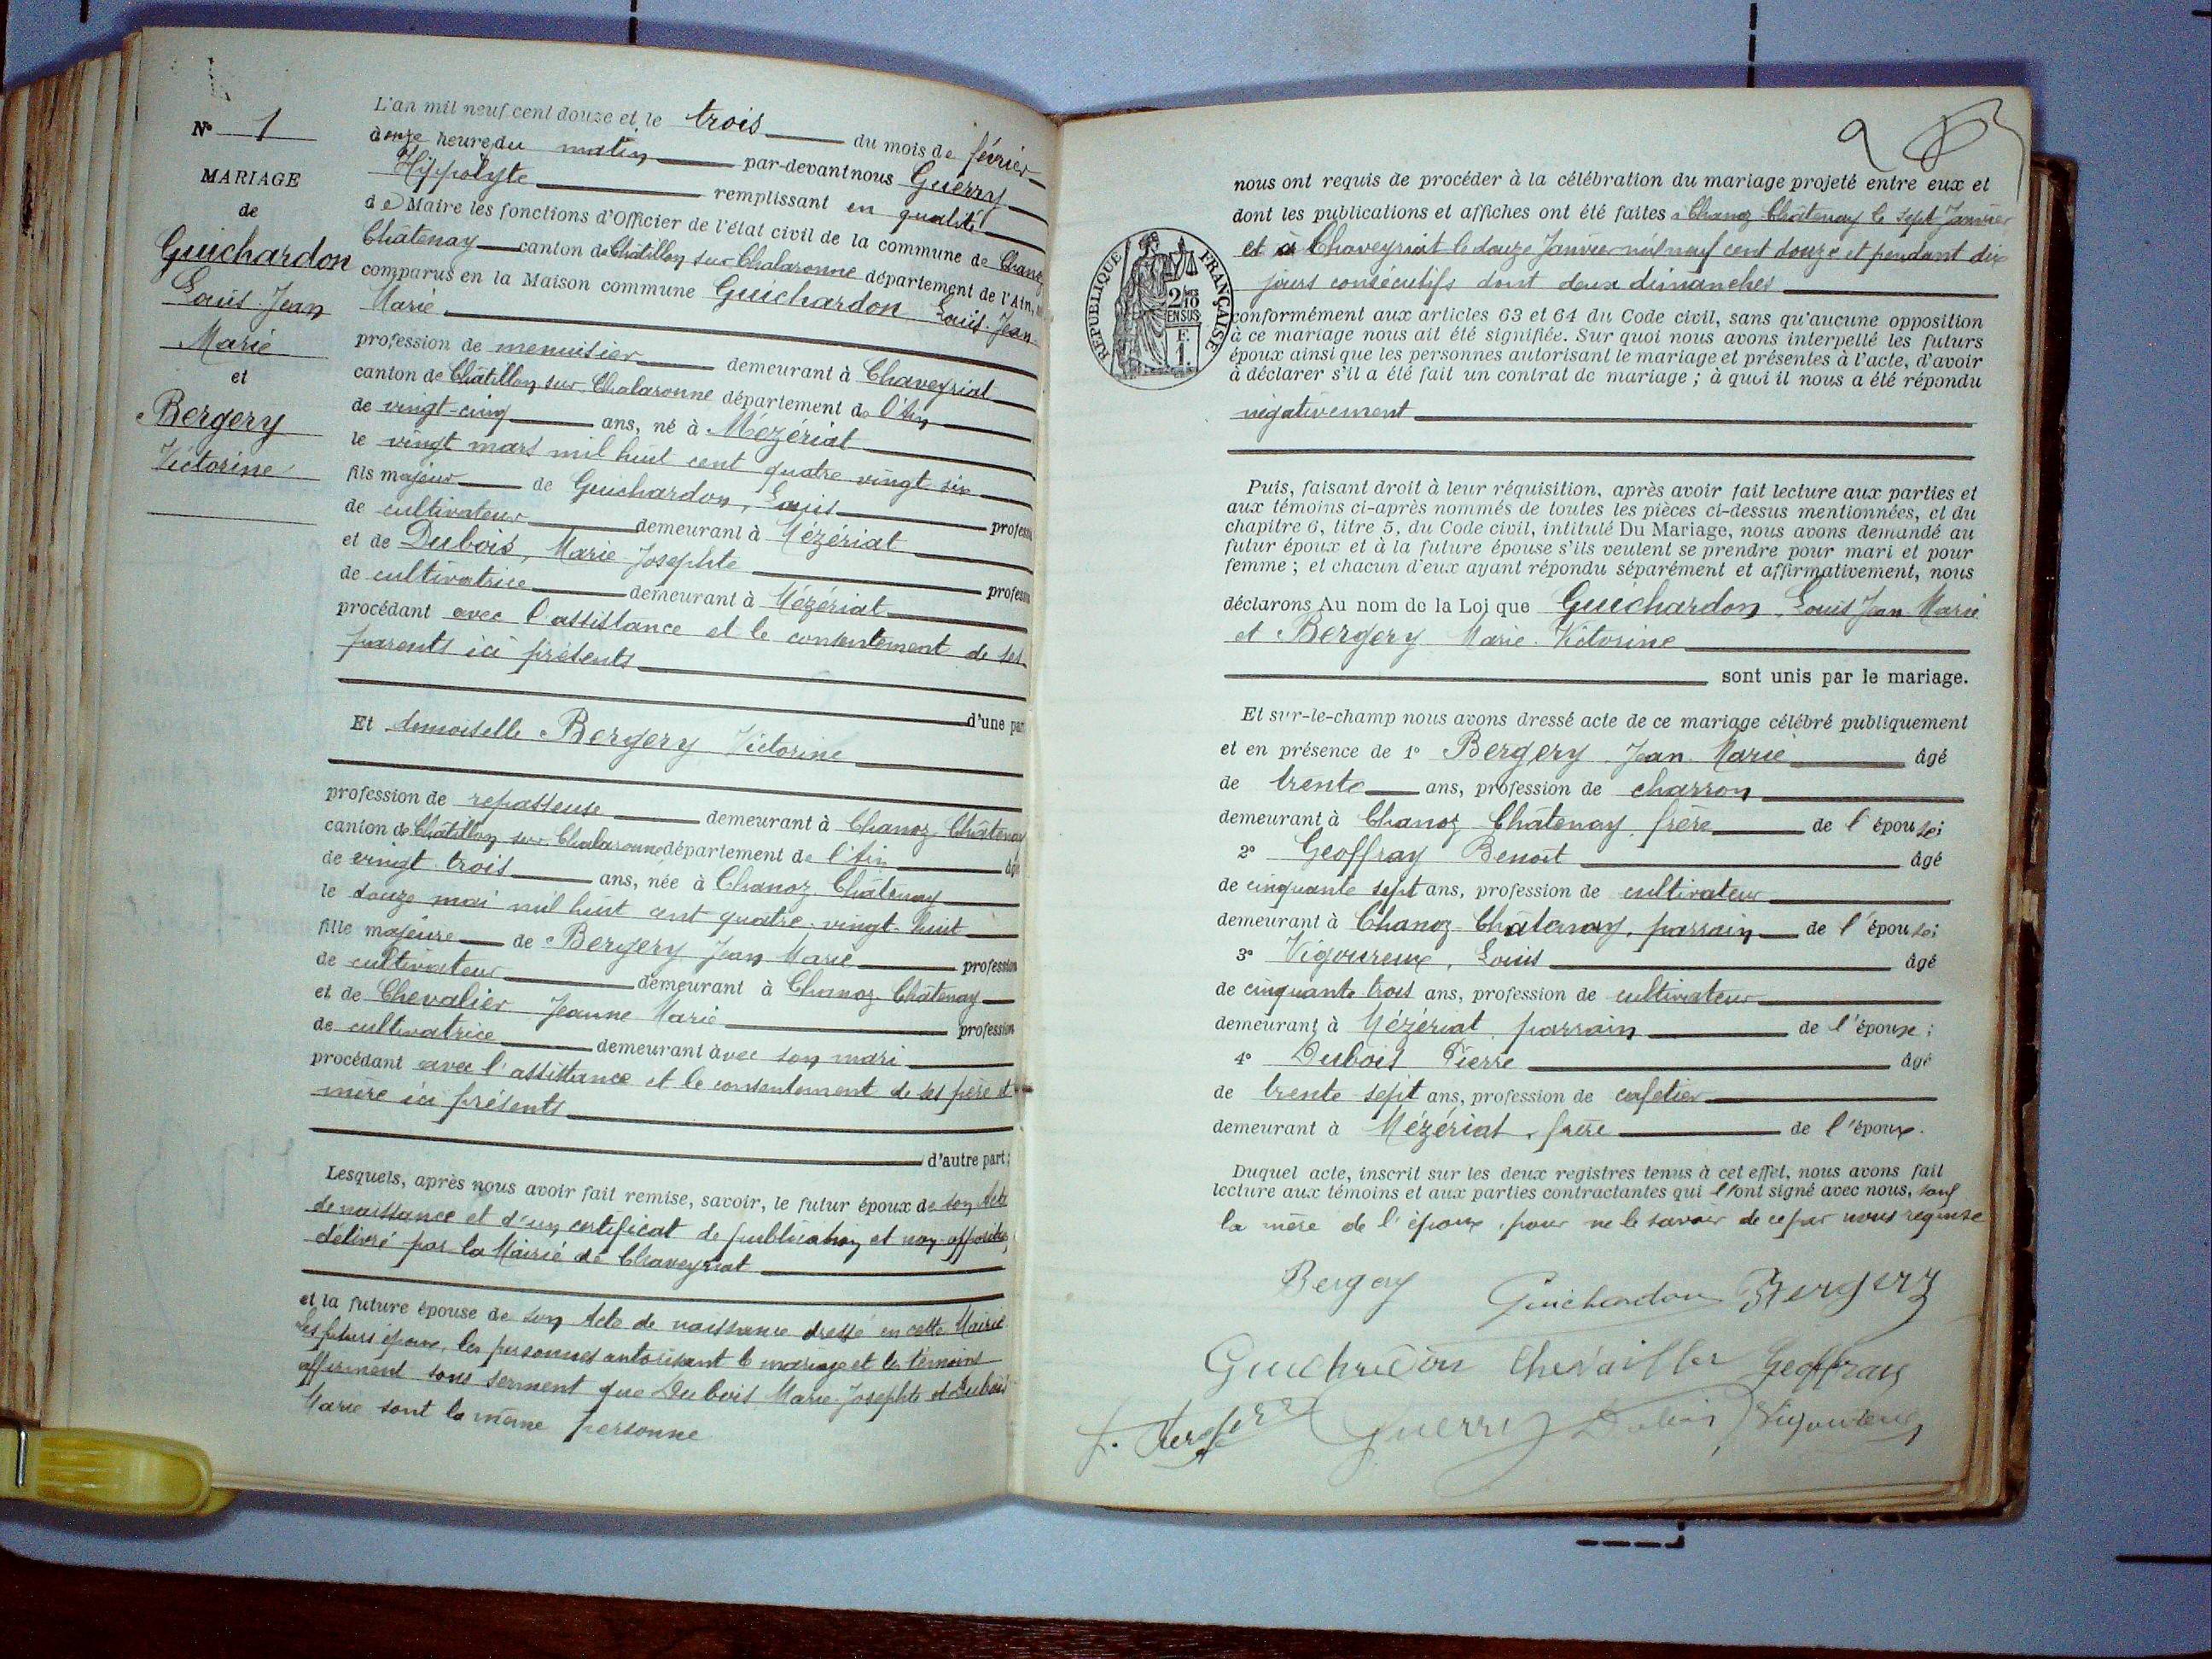 N° 1
MARIAGE
de
Guichardon
Louis Jean
Marie
et
Bergery
Victorine
L'an mil neuf cent douze et le trois du mois de février
à onze heure du matin par-devant nous Guerry
Hippolyte remplissant en qualité
de Maire les fonctions d'Officier de l'état civil de la commune de Chanoz
Châtenay canton de Châtillon sur Chalaronne département de l'Ain,
comparus en la Maison commune Guichardon Louis Jean
Marie
profession de menuisier demeurant à Chaveyriat
canton de Châtillon sur Chalaronne département de l'Ain
de vingt-cinq ans, né à Mézériat
le vingt mars mil huit cent quatre vingt six
fils majeur de Guichardon, Louis profession
de cultivateur demeurant à Mézériat
et de Dubois, Marie Josephte profession
de cultivatrice demeurant à Mézériat
procédant avec l'assistance et le consentement de ses
parents ici présents
d'une part
Et demoiselle Bergery Victorine
profession de repasseuse demeurant à Chanoz Châtenay
canton de Châtillon sur Chalaronne département de l'Ain âgé
de vingt trois ans, née à Chanoz Châtenay
le douze mai mil huit cent quatre-vingt-huit
fille majeure de Bergery Jean Marie profession
de cultivateur demeurant à Chanoz Châtenay
et de Chevalier Jeanne Marie profession
de cultivatrice demeurant avec son mari
procédant avec l'assistance et le consentement de ses père et
mère ici présents
d'autre part;
Lesquels, après nous avoir fait remise, savoir, le futur époux de son Acte
de naissance et d'un certificat de publication et non-opposition
délivré par la Mairie de Chaveyriat
et la future épouse de son Acte de naissance dressé en cette Mairie
Les futurs époux, les personnes autorisant le mariage et les témoins
affirment sous serment que Dubois Marie Josephte et Dubois
Marie sont la même personne
2
nous ont requis de procéder à la célébration du mariage projeté entre eux et
dont les publications et affiches ont été faites à Chanoz Châtenay le sept Janvier
et à Chaveyriat le douze Janvier mil neuf cent douze et pendant dix
jours consécutifs dont deux dimanches
RÉPUBLIQUE FRANÇAISE
2/10
EN SUS
F.
1.
conformément aux articles 63 et 64 du Code civil, sans qu'aucune opposition
à ce mariage nous ait été signifiée. Sur quoi nous avons interpellé les futurs
époux ainsi que les personnes autorisant le mariage et présentes à l'acte, d'avoir
à déclarer s'il a été fait un contrat de mariage ; à quoi il nous a été répondu
négativement
Puis, faisant droit à leur réquisition, après avoir fait lecture aux parties et
aux témoins ci-après nommés de toutes les pièces ci-dessus mentionnées, et du
chapitre 6, titre 5, du Code civil, intitulé Du Mariage, nous avons demandé au
futur époux et à la future épouse s'ils veulent se prendre pour mari et pour
femme ; et chacun d'eux ayant répondu séparément et affirmativement, nous
déclarons Au nom de la Loi que Guichardon Louis Jean Marie
et Bergery Marie Victorine
sont unis par le mariage.
Et sur-le-champ nous avons dressé acte de ce mariage célébré publiquement
et en présence de 1° Bergery Jean Marie âgé
de trente ans, profession de charron
demeurant à Chanoz Châtenay frère de l'épouse;
2° Geoffray Benoît âgé
de cinquante sept ans, profession de cultivateur
demeurant à Chanoz-Châtenay, parrain de l'épouse;
3° Vigoureux, Louis âgé
de cinquante trois ans, profession de cultivateur
demeurant à Mézériat parrain de l'époux;
4° Dubois Pierre âgé
de trente sept ans, profession de cafetier
demeurant à Mézériat, frère de l'époux.
Duquel acte, inscrit sur les deux registres tenus à cet effet, nous avons fait
lecture aux témoins et aux parties contractantes qui l'ont signé avec nous, sauf
la mère de l'époux, pour ne le savoir de ce par nous requise
Bergery Guichardon Bergery
Guichardon Chevallier Geoffray
Guerry Dubois Vigoureux